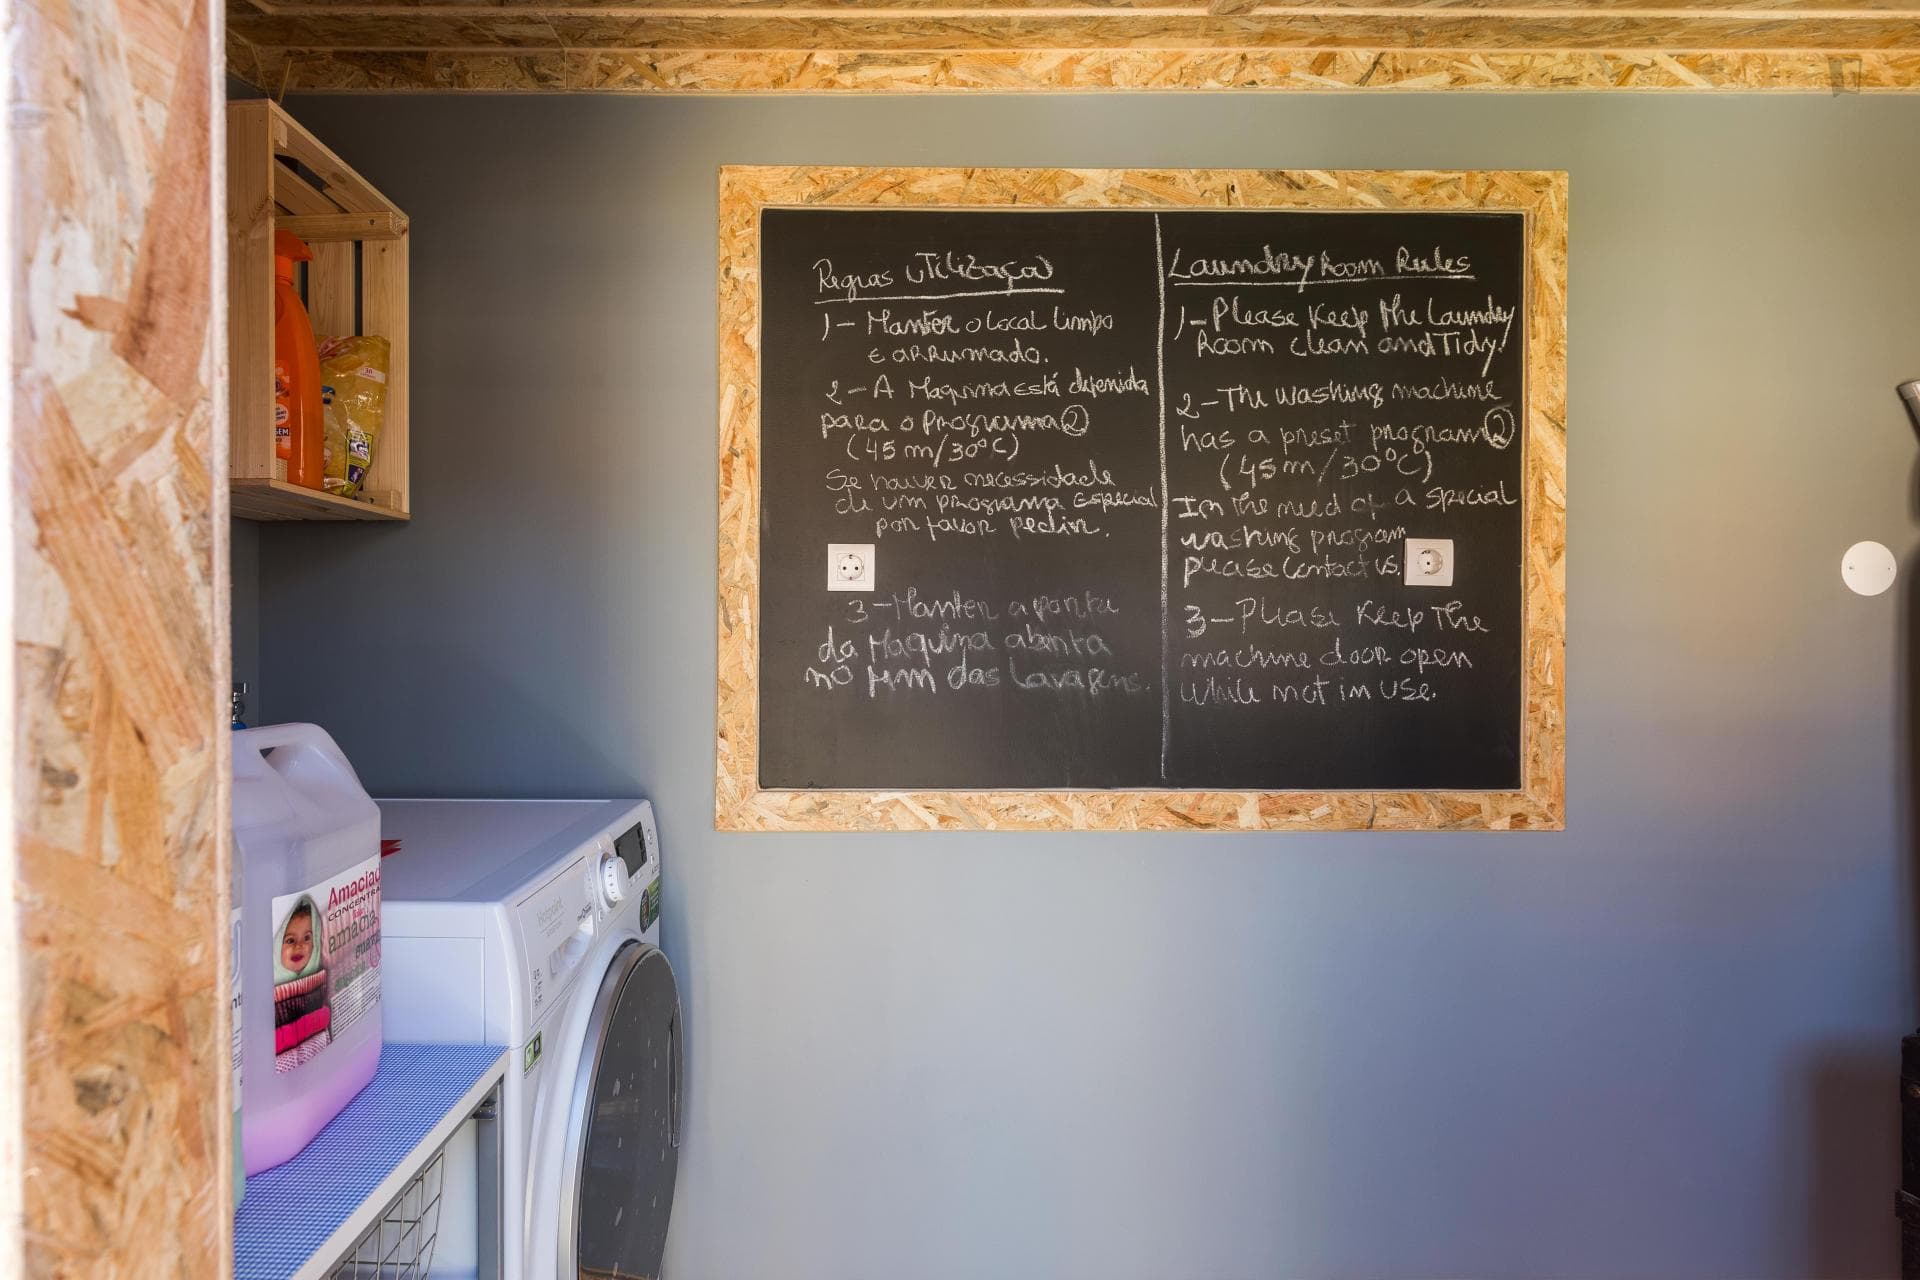 Regras utilização
1- Manter o local limpo
e arrumado.
2- A Maquina está defenida
para o Programa 2
(45 m/30ºC)
Se houver necessidade
de um programa especial
por favor pedir.
3- Manter a porta
da Maquina aberta
no fim das lavagens.
Laundry Room Rules
1- Please Keep the Laundry
Room clean and Tidy!
2- The washing machine
has a preset program 2
(45m/30ºC)
In the need of a special
washing program
please contact us.
3- Please Keep The
machine door open
while not in use.
Amaciad
CONCENTRA
amacia
Hotpoint